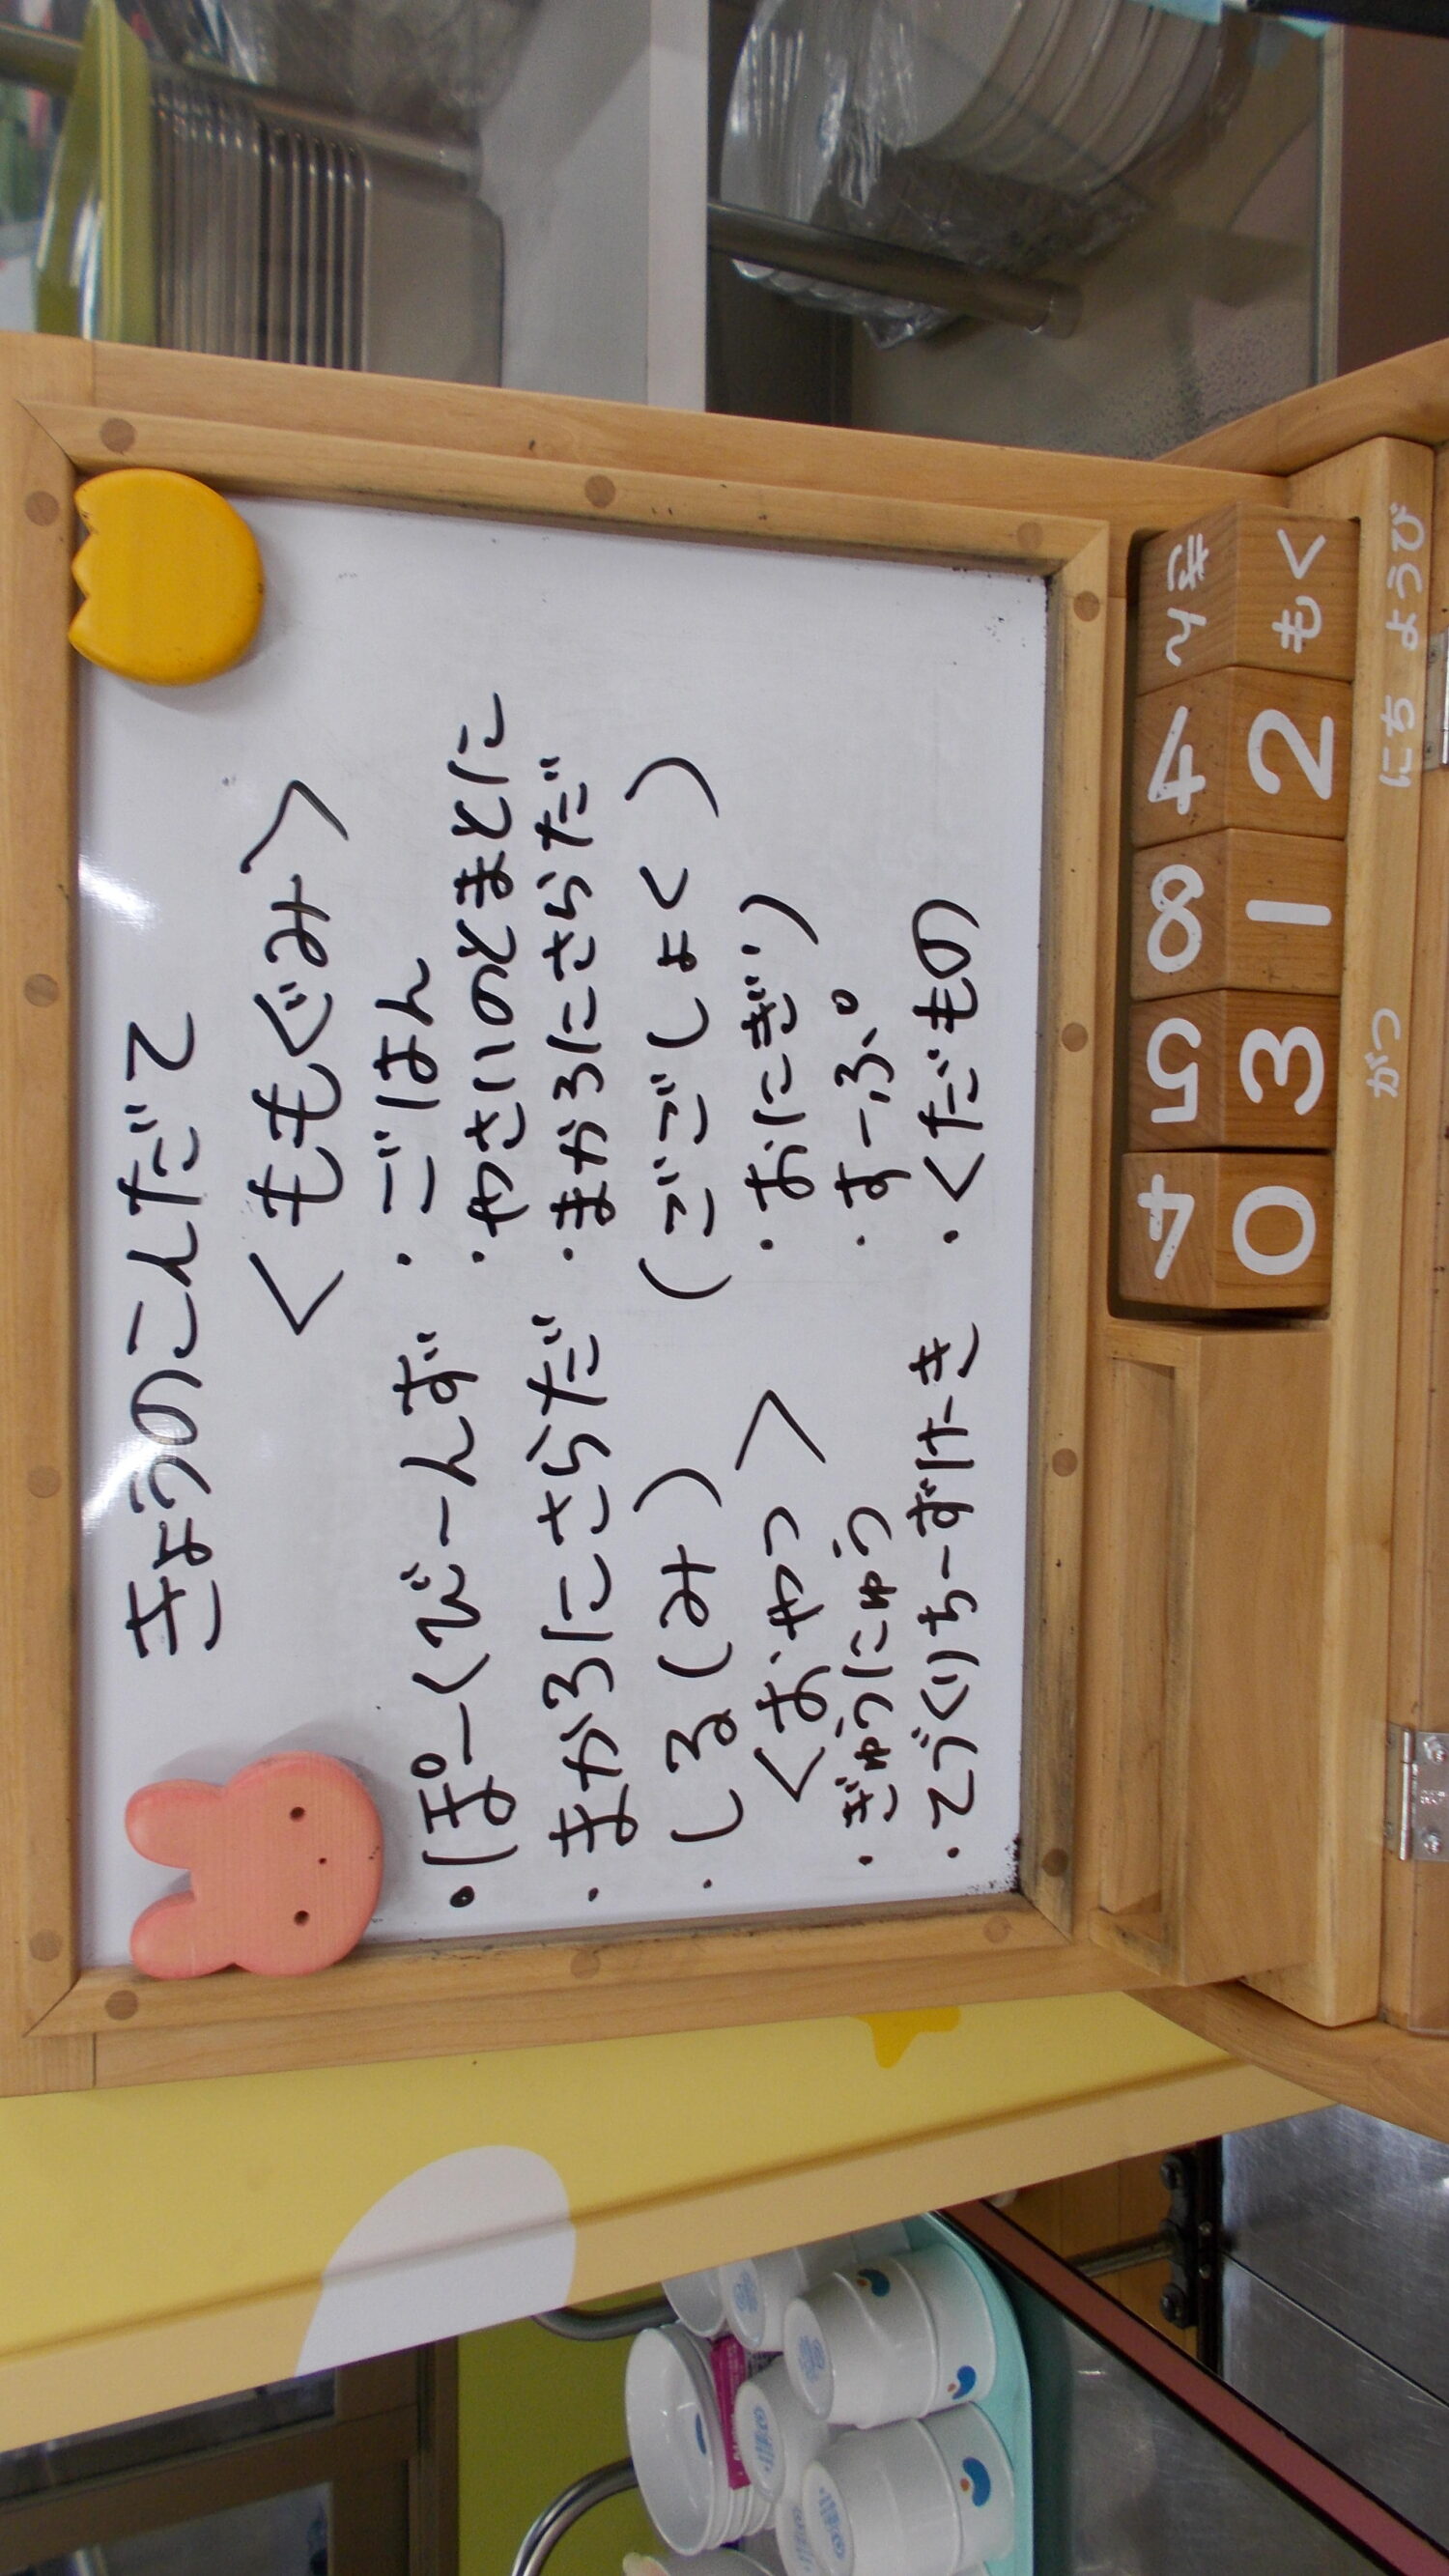 きょうのこんだて
・ぽーくびーんず
・まかろにさらだ
・しる(み)
<おやつ>
・ぎゅうにゅう
・てづくりちーずけーき
<ももぐみ>
・ごはん
・やさいのとまとに
・まかろにさらだ
(ごごしょく)
・おにぎり
・すーぷ
・くだもの
4 5 8 4 きん
0 3 1 2 もく
がつ にち ようび